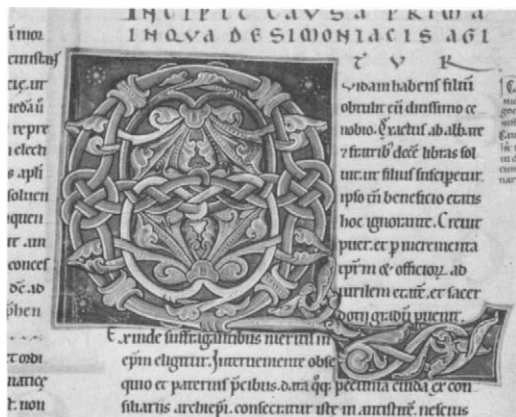 repre
elech
s apli
soluen
quen
ur .un
concef
de .ad
phen
ordi
. non
INCIPIT CAUSA PRIMA
INQVA DE SIMONIACIS AGI
TVR
Quidam habens filiū
obtulit eū ditissimo ce
nobio. Exactus ab abbate
⁊ fratribꝰ decē libras sol
uit. ut filius susciperetur.
ipso tn̄ beneficio etatis
hoc ignorante. Creuit
puer. et p incrementa
tp̄rm ⁊ officioꝝ ad
uirilem etatē. et sacer
dotij gradū puenit.
Exinde suffragantibus meritis in
ep̄m eligitur. Interueniente obse
quio et paternis p̄cibus. data q̄q; pecunia cuidā ex con
siliariis archiep̄i. consecratur iste in antistitē. nescius